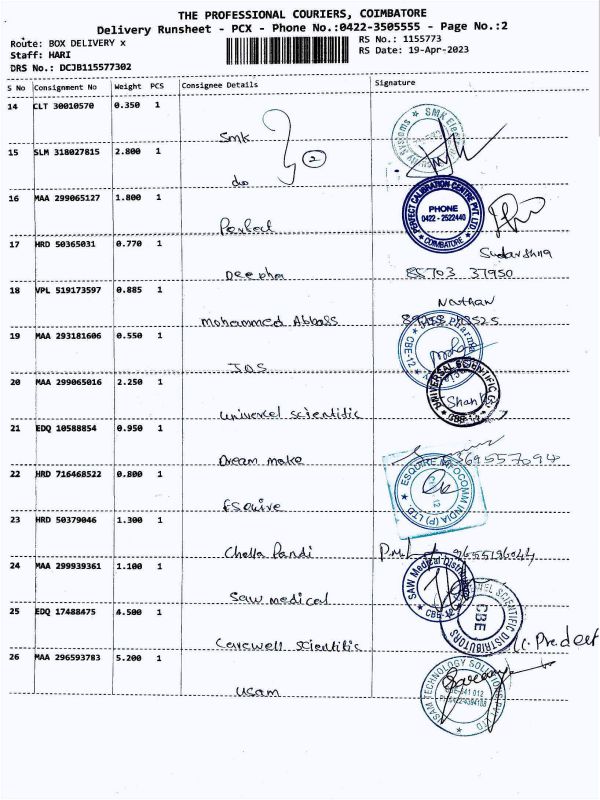 THE PROFESSIONAL COURIERS, COIMBATORE
Delivery Runsheet - PCX - Phone No.:0422-3505555 - Page No.:2
Route: BOX DELIVERY x RS No.: 1155773
Staff: HARI RS Date: 19-Apr-2023
DRS No.: DCJB115577302
S No Consignment No Weight PCS Consignee Details Signature
14 CLT 30010570 0.350 1
Smk 2
15 SLM 318027815 2.800 1
do
16 MAA 299065127 1.800 1
PERFECT CALIBRATION CENTRE PVT. LTD. PHONE 0422 - 2522440 COIMBATORE
Perfect
17 HRD 50365031 0.770 1 Sudarshna
Deepha 85703 37950
18 VPL 519173597 0.885 1 Nathan
Mohammed Abbass
19 MAA 293181606 0.550 1 Pharma CBE-12
JDS
20 MAA 299065016 2.250 1 UNIVERSAL SCIENTIFIC CBE-12 Shank
Universel scientific
21 EDQ 10588854 0.950 1
Dream make 9369557094
22 HRD 716468522 0.800 1 ESQUIRE INFOCOMM INDIA (P) LTD.
Esquire
23 HRD 50379046 1.300 1
Chella Pandi 9655196044
24 MAA 299939361 1.100 1 SAW Medical CBE-12
Saw medical
25 EDQ 17488475 4.500 1 SCIENTIFIC DISTRIBUTORS CBE
Carewell scientific K. Pradeep
26 MAA 296593783 5.200 1 USAM TECHNOLOGY SOLUTIONS PVT LTD
usam